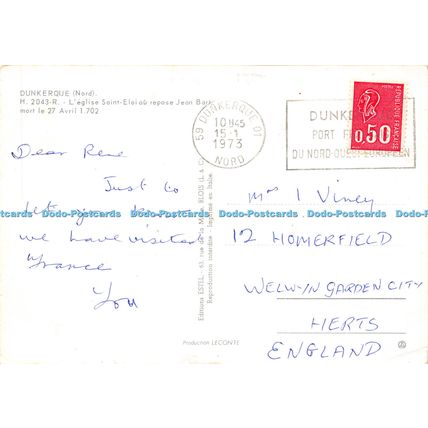 DUNKERQUE (Nord).
H. 2043-R. - L'église Saint-Eloi où repose Jean Bart
mort le 27 Avril 1.702
59 DUNKERQUE 01
10H45
15-1
1973
NORD
DUNKE
PORT
DU NORD-OUEST EUROPEEN
REPUBLIQUE FRANÇAISE
0,50
Dear Rene
Just to
let you know
we have visited
France
You
Editions ESTEL - 63, rue de la
BLOIS (L. & C.)
Reproduction interdite - Imprimé en Italie
Mrs I Viney
12 HOMERFIELD
WELWYN GARDEN CITY
HERTS
ENGLAND
Production LECONTE
Dodo-Postcards Dodo-Postcards Dodo-Postcards Dodo-Postcards Dodo-Postcards